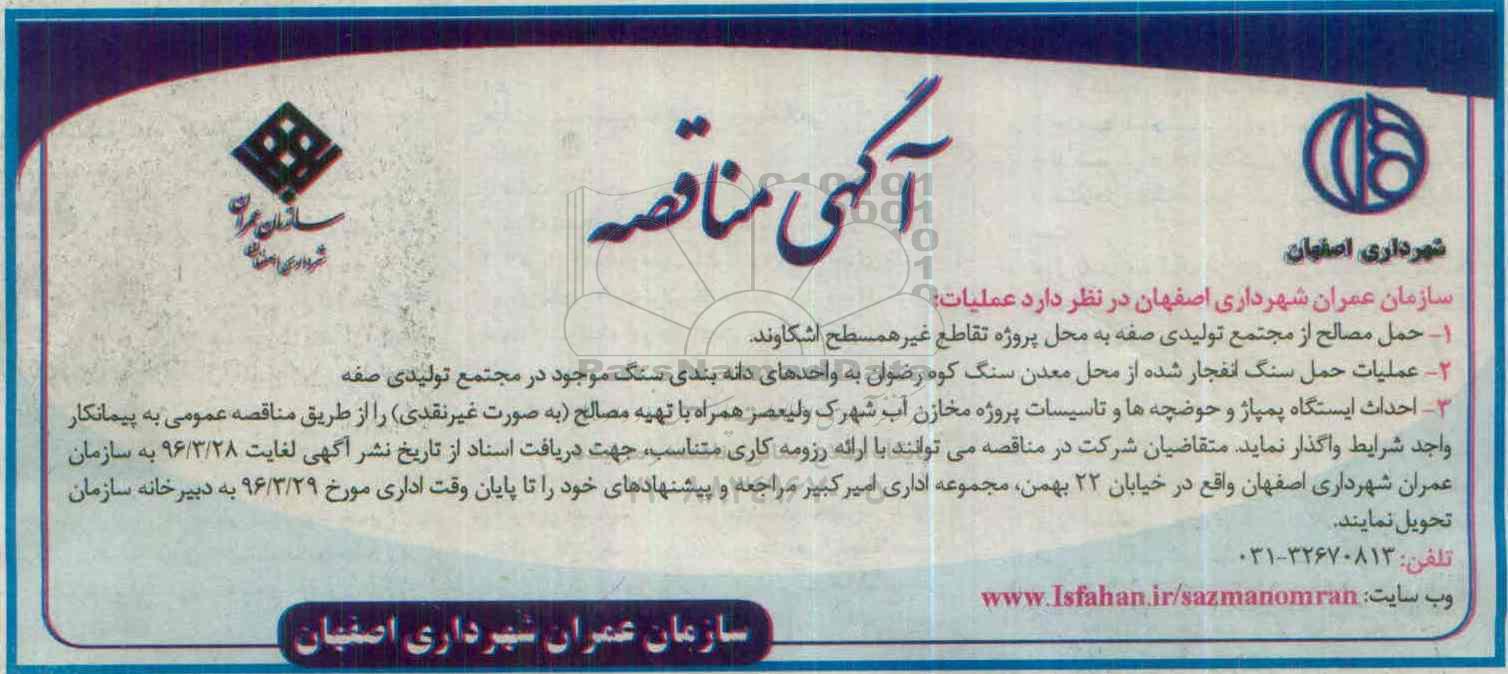 آگهی مناقصه
شهرداری اصفهان
سازمان عمران
شهرداری اصفهان
سازمان عمران شهرداری اصفهان در نظر دارد عملیات:
۱- حمل مصالح از مجتمع تولیدی صفه به محل پروژه تقاطع غیرهمسطح اشکاوند.
۲- عملیات حمل سنگ انفجار شده از محل معدن سنگ کوه رضوان به واحدهای دانه بندی سنگ موجود در مجتمع تولیدی صفه
۳- احداث ایستگاه پمپاژ و حوضچه ها و تاسیسات پروژه مخازن آب شهرک ولیعصر همراه با تهیه مصالح (به صورت غیرنقدی) را از طریق مناقصه عمومی به پیمانکار
واجد شرایط واگذار نماید. متقاضیان شرکت در مناقصه می توانند با ارائه رزومه کاری متناسب، جهت دریافت اسناد از تاریخ نشر آگهی لغایت ۹۶/۳/۲۸ به سازمان
عمران شهرداری اصفهان واقع در خیابان ۲۲ بهمن، مجموعه اداری امیرکبیر مراجعه و پیشنهادهای خود را تا پایان وقت اداری مورخ ۹۶/۳/۲۹ به دبیرخانه سازمان
تحویل نمایند.
تلفن: ۰۳۱-۳۲۶۷۰۸۱۳
وب سایت: www.Isfahan.ir/sazmanomran
سازمان عمران شهرداری اصفهان